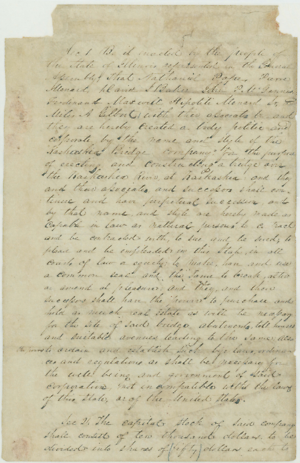 Sec 1 Be it enacted by the people of
the State of Illinois represented in the General
Assembly That Nathaniel Pope Pierre
Menard
Ferdinand Maxwell Hipolite Menard Jr &
Miles A Gilbert with their associates be and
they are hereby created a body politic and
corporate by the name and style of the
Kaskaskia Bridge Company for the purpose
of erecting and constructing a bridge over
the Kaskaskia River at Kaskaskia and they
and their associates and successors shall con-
tinue and have perpetual succession and
by that name and style are hereby made as
capable in law as natural persons to contract
and be contracted with to sue and be sued, to
plead and be impleaded in this State in all
courts of law & equity to make have and use
a common seal and the same to break alter
or amend at pleasure and they and their
successors shall have the power to purchase and
hold as much real estate as will be necessary
for the site of said bridge abutments toll houses
and suitable avenues leading to the same
ordain and establish such by laws ordinan-
ces and regulations as shall be necessary for
the well being and government of said
corporation not incompatible with the laws
of this State or of the United States.
Sec 2 The capital stock of said company
shall consist of ten thousand dollars to be
divided into shares of fifty dollars each to